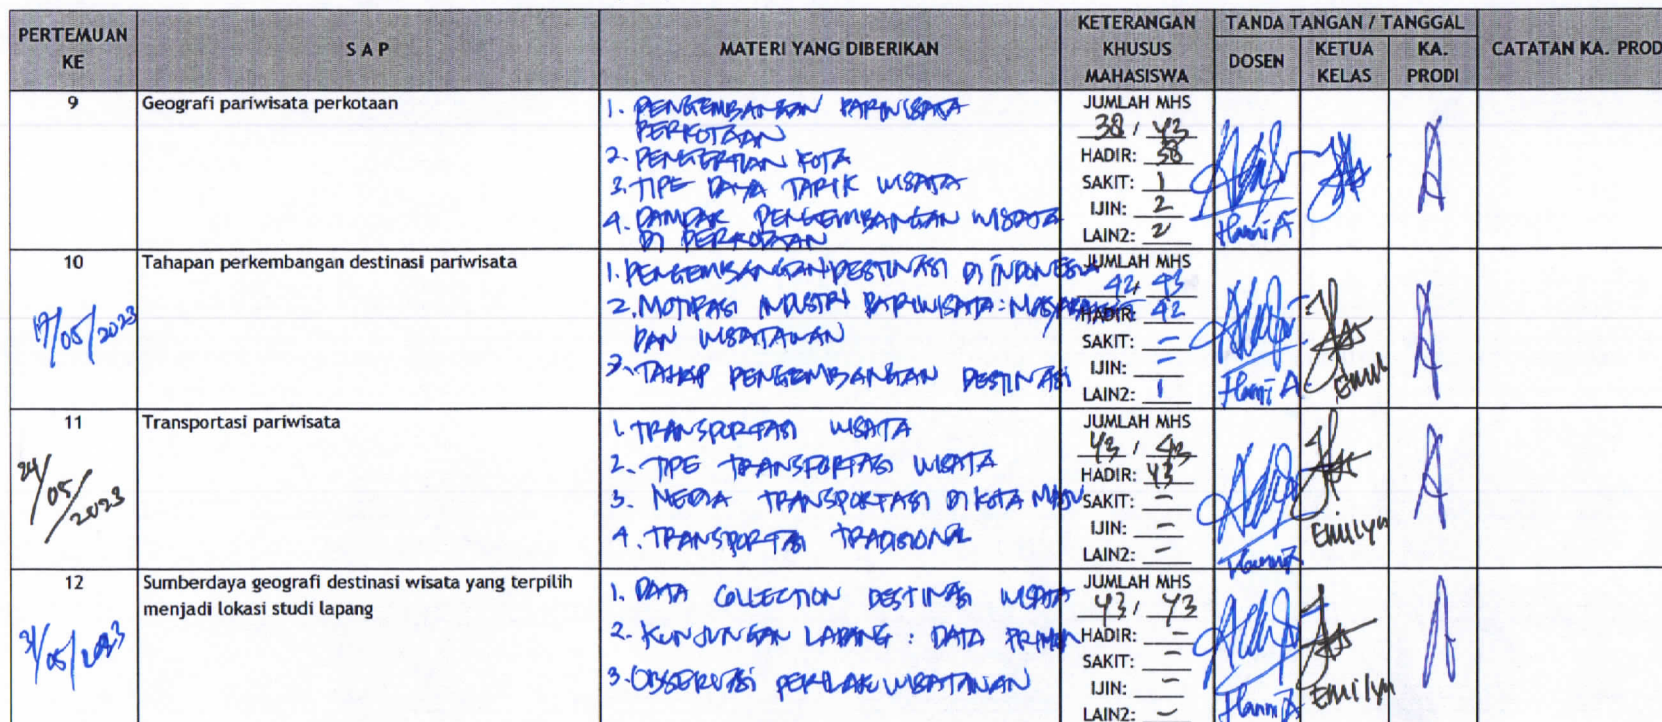 PERTEMUAN KE
S A P
MATERI YANG DIBERIKAN
KETERANGAN KHUSUS MAHASISWA
TANDA TANGAN / TANGGAL
DOSEN
KETUA KELAS
KA. PRODI
CATATAN KA. PROD
9
Geografi pariwisata perkotaan
1. PENGEMBANGAN PARIWISATA
PERKOTAAN
2. PENGERTIAN KOTA
3. TIPE DAYA TARIK WISATA
4. DAMPAK PENGEMBANGAN WISATA
DI PERKOTAAN
JUMLAH MHS
38 / 43
HADIR: 38
SAKIT: 1
IJIN: 2
LAIN2: 2
Hanni A
10
19/05/2023
Tahapan perkembangan destinasi pariwisata
1. PENGEMBANGAN DESTINASI DI INDONESIA
2. MOTIVASI INDUSTRI PARIWISATA: MASYARAKAT
DAN WISATAWAN
3. TAHAP PENGEMBANGAN DESTINASI
JUMLAH MHS
42 / 43
HADIR: 42
SAKIT: -
IJIN: -
LAIN2: 1
Hanni A
11
24/05/2023
Transportasi pariwisata
1. TRANSPORTASI WISATA
2. TIPE TRANSPORTASI WISATA
3. MEDIA TRANSPORTASI DI KOTA MAJU
4. TRANSPORTASI TRADISIONAL
JUMLAH MHS
43 / 43
HADIR: 43
SAKIT: -
IJIN: -
LAIN2: -
Emilyn
12
31/05/2023
Sumberdaya geografi destinasi wisata yang terpilih
menjadi lokasi studi lapang
1. DATA COLLECTION DESTINASI WISATA
2. KUNJUNGAN LAPANG : DATA PRIMER
3. OBSERVASI PERILAKU WISATAWAN
JUMLAH MHS
43 / 43
HADIR: -
SAKIT: -
IJIN: -
LAIN2: -
Hanni A
Emilyn